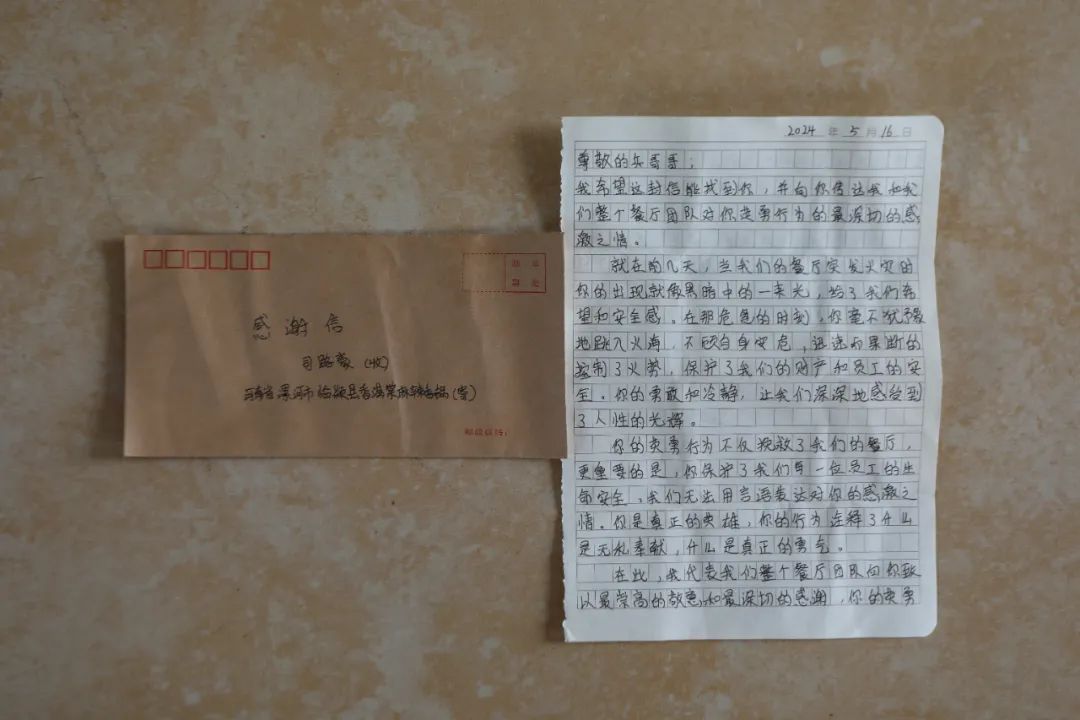 感谢信
司路豪(收)
河南省漯河市临颍县香满棠麻辣香锅(寄)
邮政编码：
2024年5月16日
尊敬的兵哥哥：
我希望这封信能找到你，并向你传达我和我
们整个餐厅团队对你英勇行为的最深切的感
激之情。
就在前几天，当我们的餐厅突发火灾时
你的出现就像黑暗中的一束光，给了我们希
望和安全感。在那危急的时刻，你毫不犹豫
地跳入火海，不顾自身安危，迅速而果断的
控制了火势，保护了我们的财产和员工的安
全。你的勇敢和冷静，让我们深深地感受到
了人性的光辉。
你的英勇行为不仅挽救了我们的餐厅，
更重要的是，你保护了我们每一位员工的生
命安全，我们无法用言语表达对你的感激之
情。你是真正的英雄，你的行为诠释了什么
是无私奉献，什么是真正的勇气。
在此，我代表我们整个餐厅团队向你致
以最崇高的敬意和最深切的感谢，你的英勇